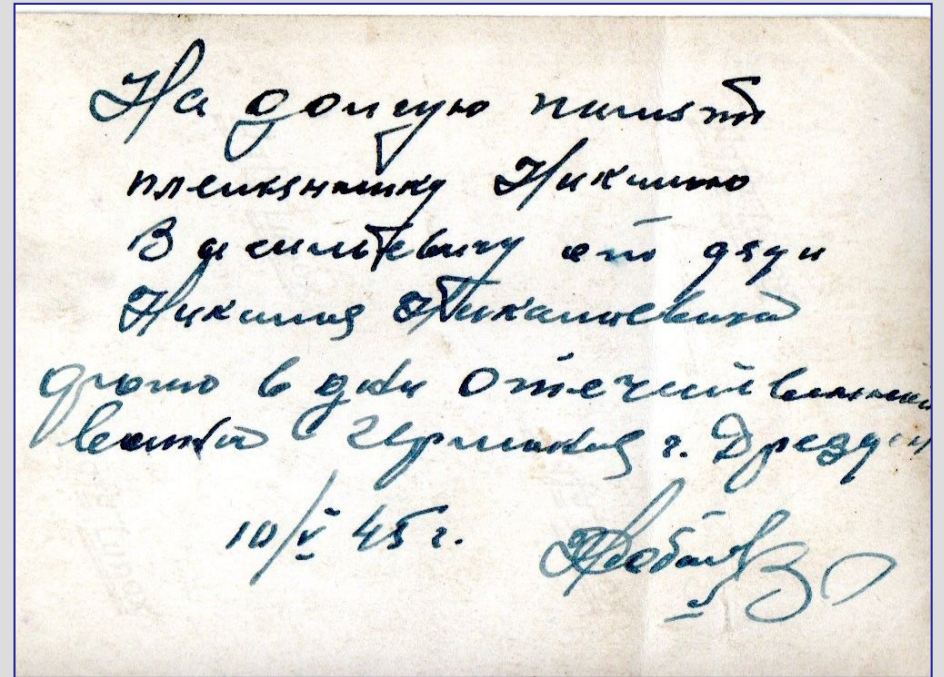 На долгую память
племяннику Никишию
Васильевичу от дяди
Никишия Никишиевича
фото в дни Отечественной
войны Германия г. Дрезден
10/V 45 г.